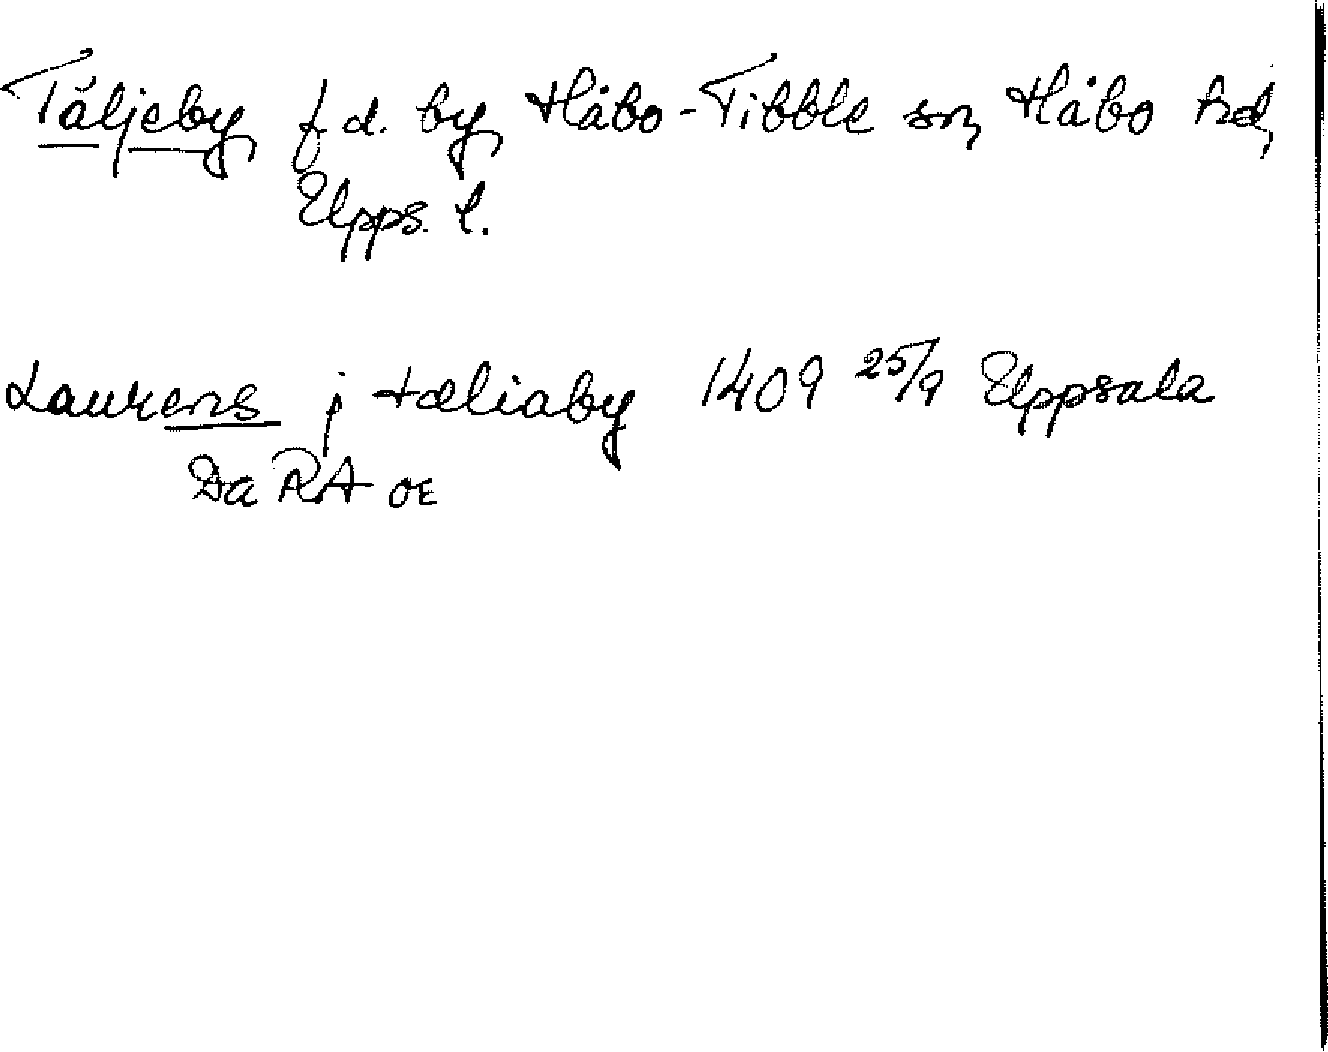 Täljeby, f.d. by, Håbo-Tibble sn, Håbo hd,
Upps. l.
Laurens j tæliaby 1409 25/9 Uppsala
Da RA or